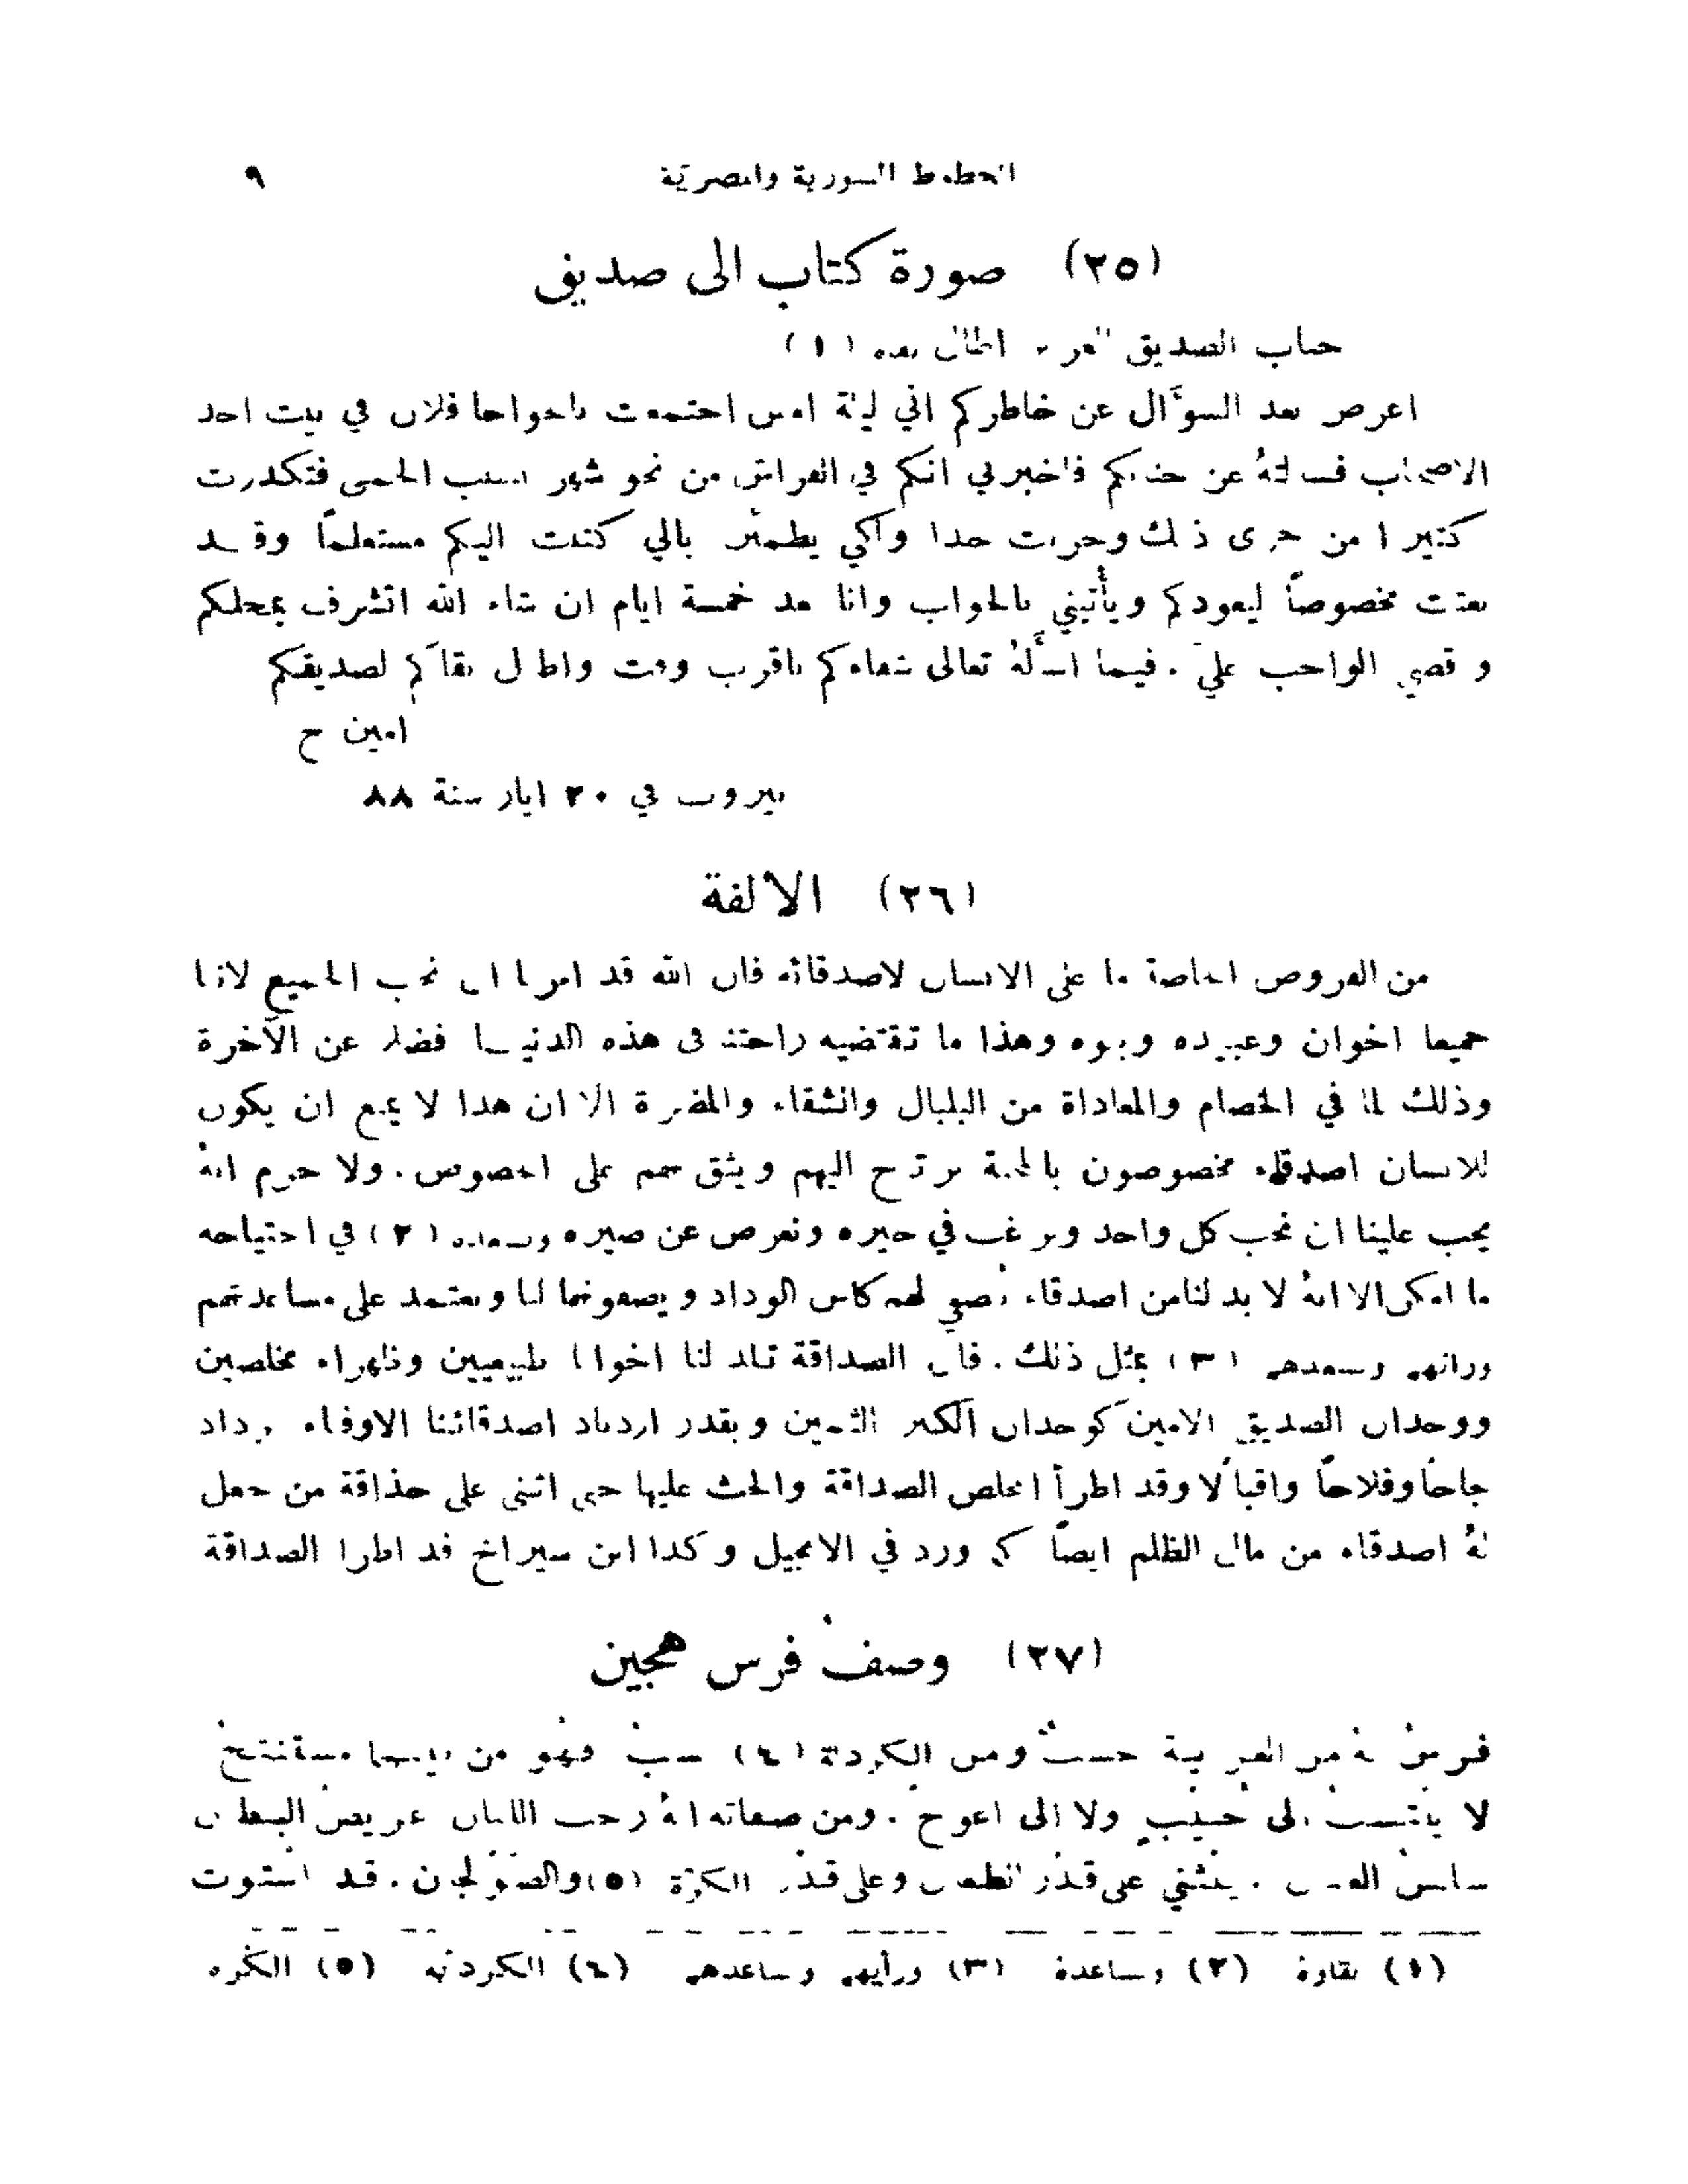 الخطوط السورية والمصريّة ٩
(٢٥) صورة كتاب الى صديق
جناب الصديق العزيز اطال بقاه (١)
اعرض بعد السوَّال عن خاطركم اني ليلة امس اجتمعت باخواجا فلان في بيت احد
الاصحاب فسالتهُ عن جنابكم فاخبرني انكم في الفراش من نحو شهر بسبب الحمى فتكدرت
كثيرا من جرى ذلك وحزنت جدا ولكي يطمئن بالي كتبت اليكم مستعلماً وقـد
بعثت مخصوصاً ليعودكم ويأتيني بالجواب وانا بعد خمسة ايام ان شاء الله اتشرف بمحلكم
و قضي الواجب عليَّ . فيما اسأَلهُ تعالى شفاءكم باقرب وقت واطال بقاكم لصديقكم
امين ح
بيروت في ٢٠ ايار سنة ٨٨
(٢٦) الالفة
من الفروض الخاصة ما على الانسان لاصدقائه فان الله قد امرنا ان نحب الجميع لاننا
جميعا اخوان وعبيده وبنوه وهذا ما تقتضيه راحتنا في هذه الدنيـا فضلا عن الآخرة
وذلك لما في الخصام والمعاداة من البلبال والشقاء والمضرة الا ان هذا لا يمنع ان يكون
للانسان اصدقاء مخصوصون بالمحبة يرتاح اليهم ويثق بهم على الخصوص. ولا جرم انهُ
يجب علينا ان نحب كل واحد ونرغب في خيره ونعرض عن ضيره (٢) في احتياجه
ما امكن الا انهُ لا بد لنا من اصدقاء نصفي لهم كاس الوداد ويصفونها لنا ونعتمد على مساعدتهم
(٣) بمثل ذلك . فان الصداقة تلد لنا اخوانا طبيعيين وظهراء مخلصين
ووجدان الصديق الامين كوجدان الكنز الثمين وبقدر ازدياد اصدقائنا الاوفياء نزداد
نجاحًا وفلاحًا واقبالًا وقد اطرأ المخلص الصداقة والحث عليها حتى اثنى على حذاقة من جعل
لهُ اصدقاء من مال الظلم ايضًا كما ورد في الانجيل وكذا ابن سيراخ قد اطرا الصداقة
(٢٧) وصفُ فرس هجين
فرسٌ لهُ من العربية حسبٌ ومن الكردنة (٤) نسبٌ فهو من بينهما مستنتجٌ
لا ينتسب الى حبيبٍ ولا الى اعوج . ومن صفاته انهُ رحب اللبان عريض البطان
سلس العنان . ينثني على قدر الطعان وعلى قدر الكرة (٥) والصولجان . قد استوت
(١) بقاءة (٢) وساعدة (٣) ورأيهم وساعدهم (٤) الكردنه (٥) الكره